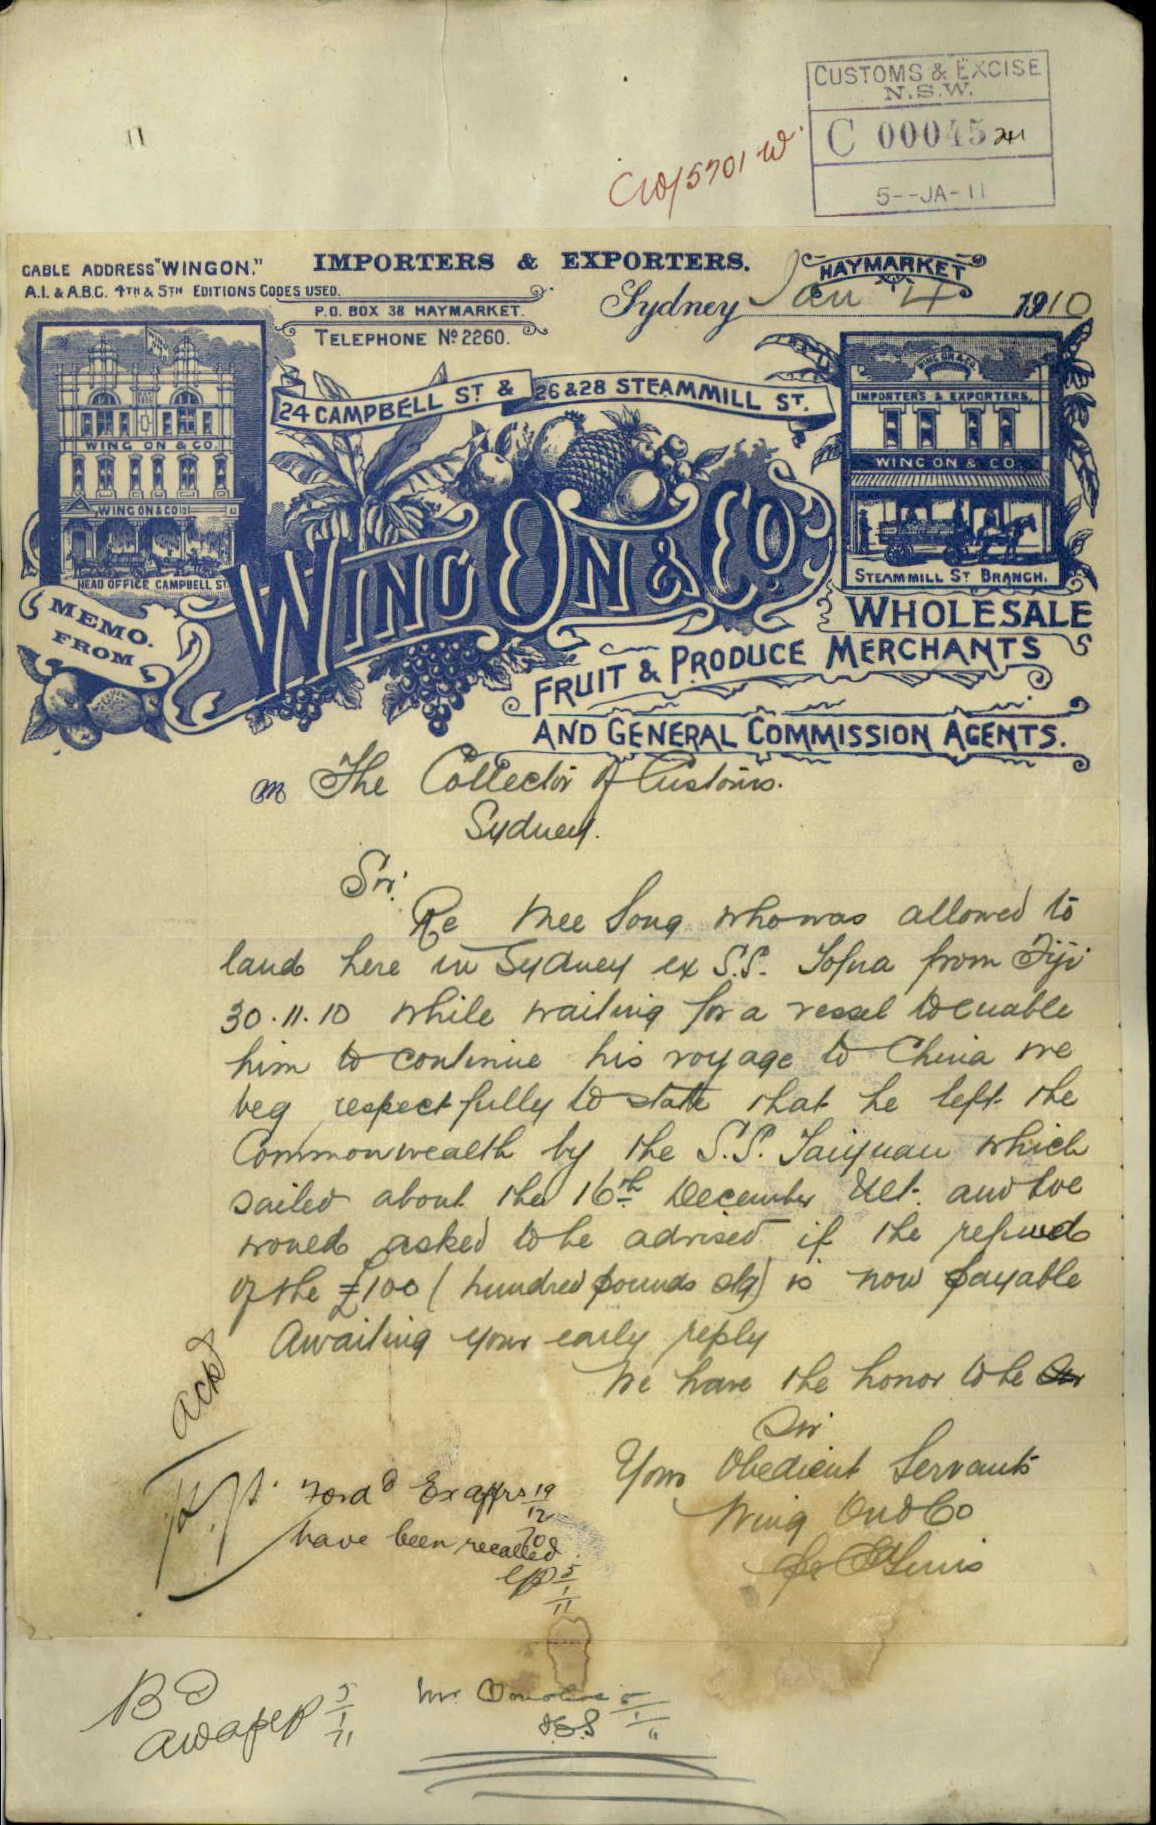 11
CUSTOMS & EXCISE
N.S.W.
C 00045
5--JA-11
C10/5701 W.
CABLE ADDRESS "WINGON."
A.I. & A.B.C. 4TH & 5TH EDITIONS CODES USED.
IMPORTERS & EXPORTERS.
P.O. BOX 38 HAYMARKET.
TELEPHONE No 2260.
HAYMARKET
Sydney Jan 4 1910
24 CAMPBELL ST & 26 & 28 STEAMMILL ST.
WING ON & CO
WING ON & CO
HEAD OFFICE CAMPBELL ST
WING ON & CO.
IMPORTERS & EXPORTERS.
WING ON & CO
STEAMMILL ST BRANCH.
MEMO.
FROM
WING ON & CO.
WHOLESALE
FRUIT & PRODUCE MERCHANTS
AND GENERAL COMMISSION AGENTS.
M The Collector of Customs.
Sydney.
Sir.
Re Mee Song who was allowed to
land here in Sydney ex S.S. Tofua from Fiji
30.11.10 while waiting for a vessel to enable
him to continue his voyage to China we
beg respectfully to state that he left the
Commonwealth by the S.S. Taiyuan which
sailed about the 16th December Ult. and we
would asked to be advised if the refund
of the £100 (hundred pounds stg) is now payable
Awaiting your early reply
We have the honor to be
Sir
Your Obedient Servants
Wing On & Co
Ackd
Ford Ex apprs 19/12/10
have been recalled
5/1/11
BD
5/1/11
Mr. 5/1/11